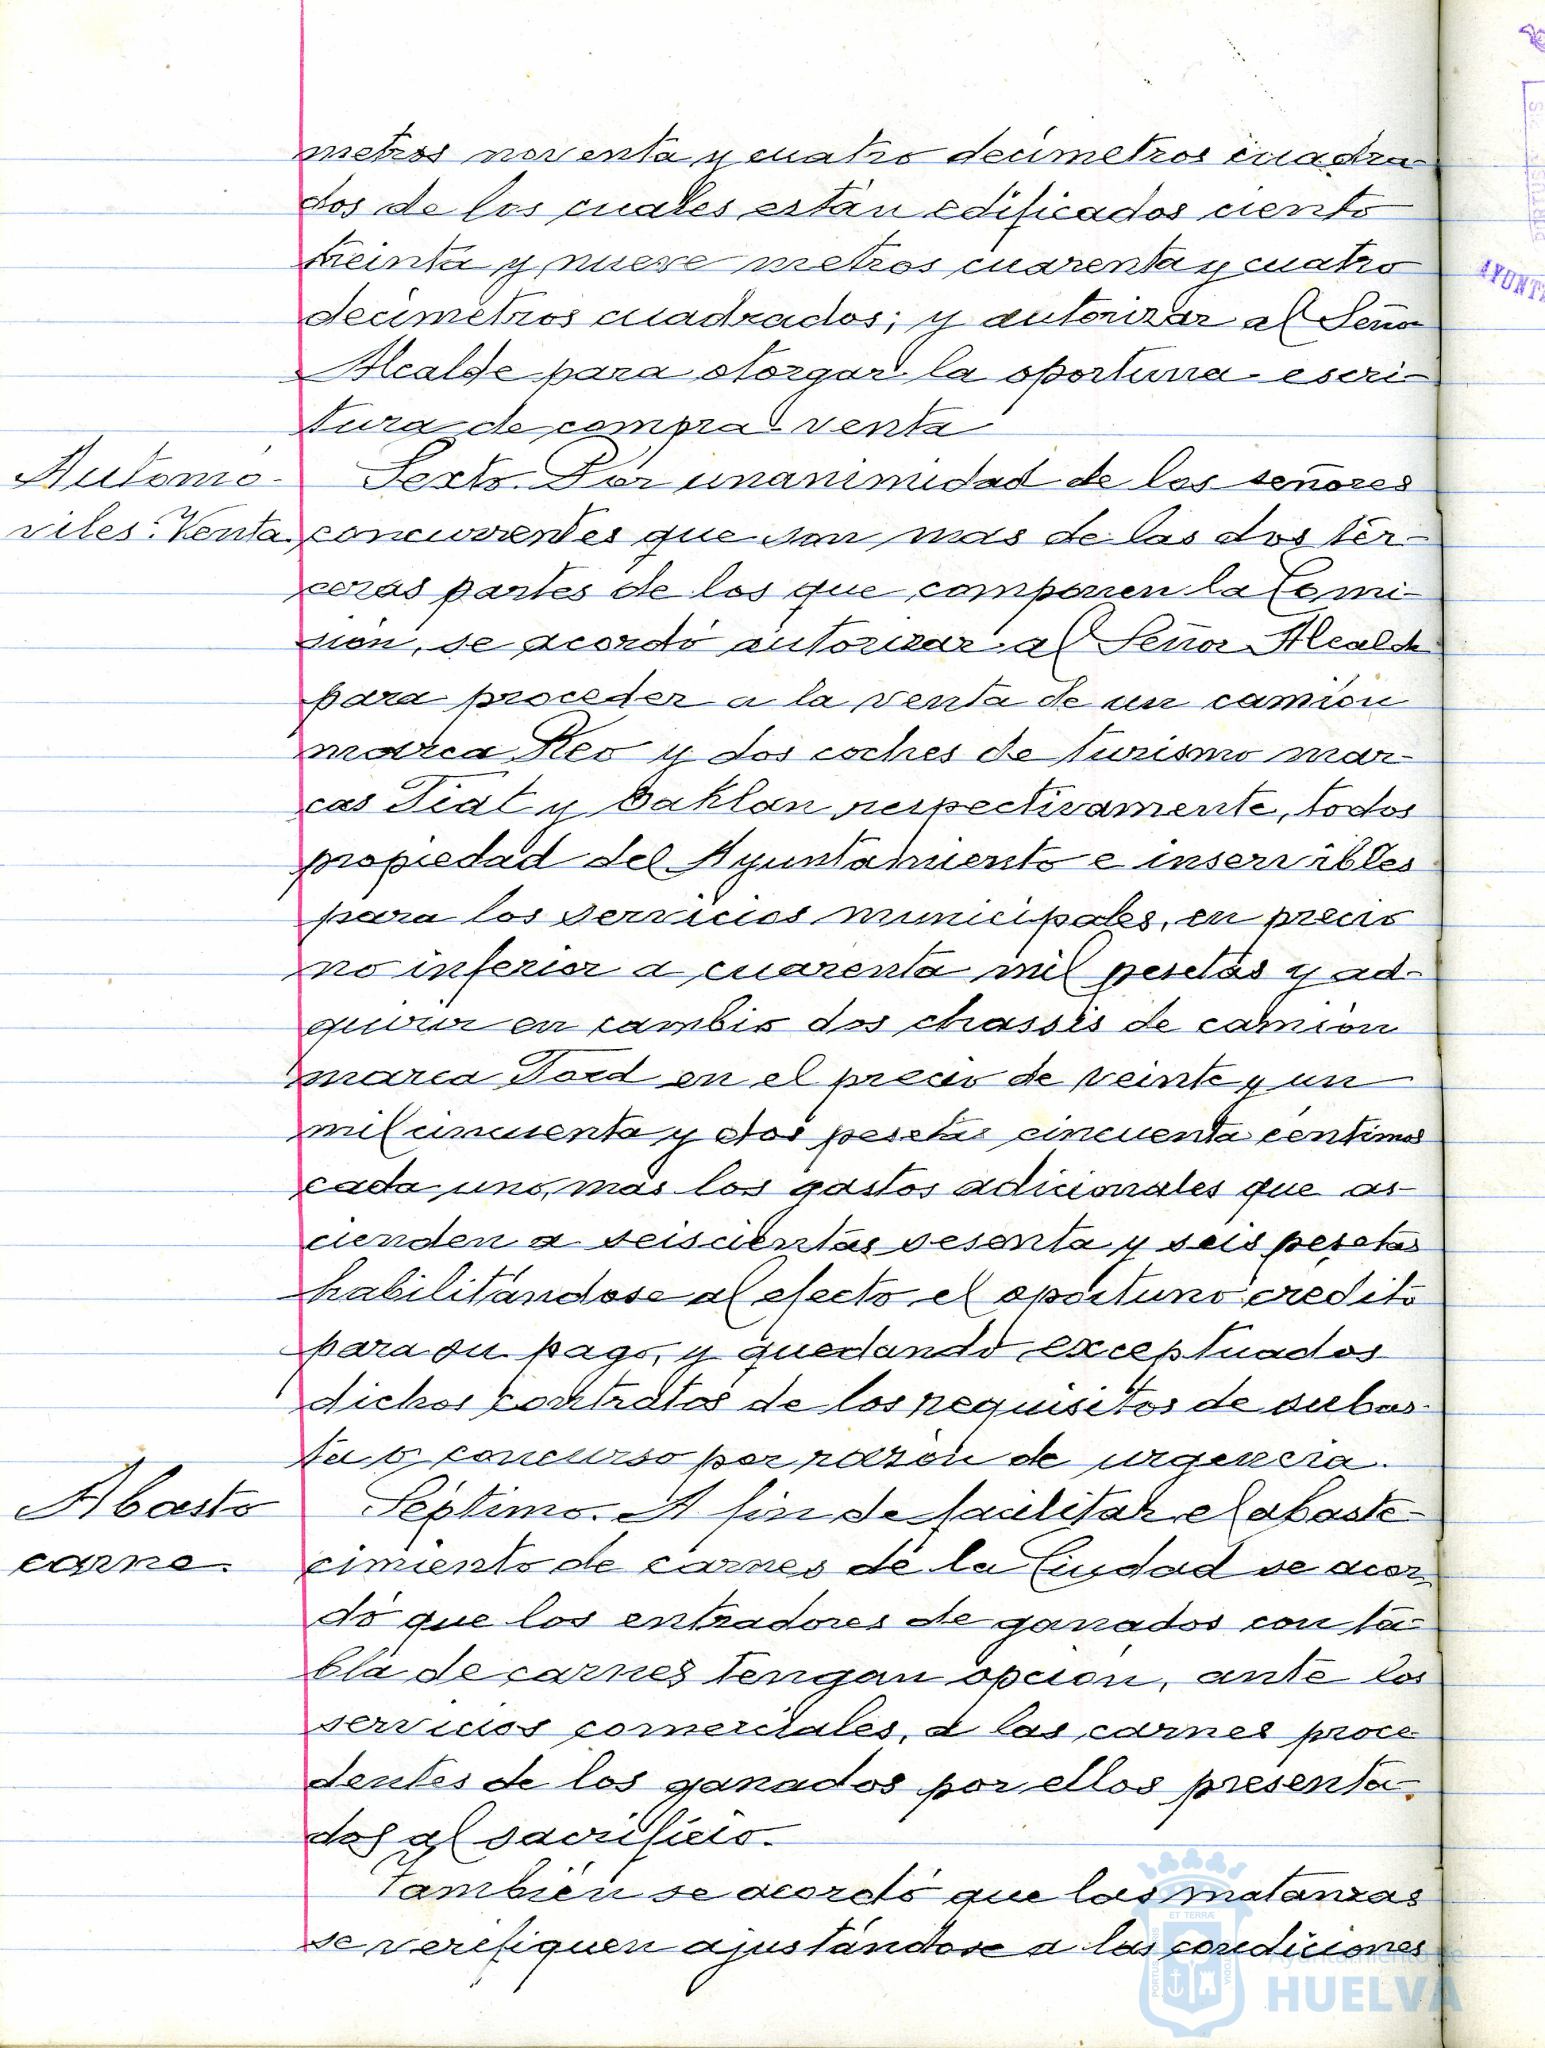 metros noventa y cuatro decimetros cuadra-
dos de los cuales están edificados ciento
treinta y nueve metros cuarenta y cuatro
decimetros cuadrados; y autorizar al Señor
Alcalde para otorgar la oportuna escri-
tura de compra-venta
Automo-
viles: Venta.
Sexto. Por unanimidad de los señores
concurrentes que son mas de las dos ter-
ceras partes de los que componen la Comi-
sión, se acordó autorizar al Señor Alcalde
para proceder a la venta de un camión
marca Reo y dos coches de turismo mar-
cas Fiat y Oaklan respectivamente, todos
propiedad del Ayuntamiento e inservibles
para los servicios municipales, en precio
no inferior a cuarenta mil pesetas y ad-
quirir en cambio dos chassis de camión
marca Ford en el precio de veinte y un
mil cincuenta y dos pesetas cincuenta centimos
cada uno, mas los gastos adicionales que as-
cienden a seiscientas sesenta y seis pesetas
habilitándose al efecto el oportuno credito
para su pago, y quedando exceptuados
dichos contratos de los requisitos de subas-
ta o concurso por razón de urgencia.
Abasto
carne.
Séptimo. A fin de facilitar el abaste-
cimiento de carnes de la Ciudad se acor-
dó que los entradores de ganados con ta-
bla de carnes tengan opción, ante los
servicios comerciales, a las carnes proce-
dentes de los ganados por ellos presenta-
dos al sacrificio.
También se acordó que las matanzas
se verifiquen ajustándose a las condiciones
AYUNT
ET TERRÆ
PORTUS
CUSTODIA
Ayuntamiento de
HUELVA